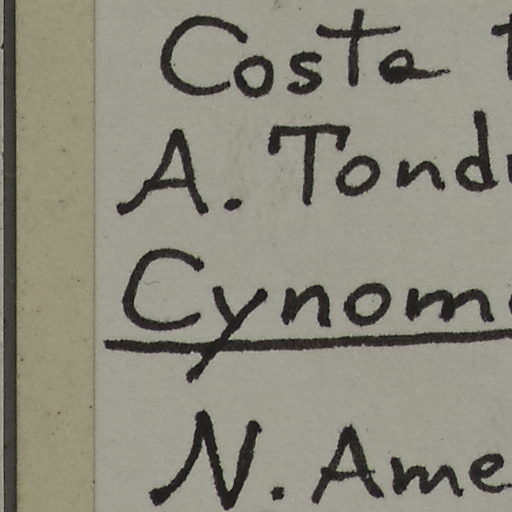 Costa
A. Tond
Cynom
N. Ame